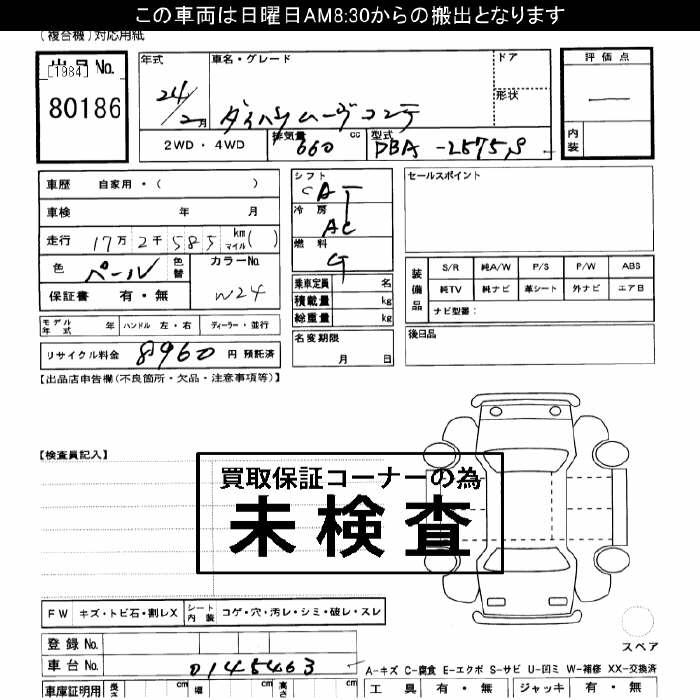 この車両は日曜日AM8:30からの搬出となります
(複合機)対応用紙
出品No.
[1984]
80186
年式
24/2月
車名・グレード
ダイハツムーヴコンテ
ドア
形状
評価点
内装
2WD・4WD
排気量
660 cc
型式
DBA-L575S
車歴 自家用・( )
車検 年 月
走行 17万2千585 km マイル( )
色 パール
色替
カラーNo.
W24
保証書 有・無
モデル年式 年
ハンドル 左・右
ディーラー・並行
リサイクル料金 8960 円 預託済
シフト
CAT
冷房
AC
燃料
G
乗車定員 名
積載量 kg
総重量 kg
名変期限
月 日
セールスポイント
装備品
S/R 純A/W P/S P/W ABS
純TV 純ナビ 革シート 外ナビ エアB
ナビ型番:
後日品
【出品店申告欄(不良箇所・欠品・注意事項等)】
【検査員記入】
買取保証コーナーの為
未検査
FW キズ・トビ石・割レX
シート内装 コゲ・穴・汚レ・シミ・破レ・スレ
登録No.
車台No. 0145463
スペア
A-キズ C-腐食 E-エクボ S-サビ U-凹ミ W-補修 XX-交換済
車庫証明用 長さ cm 幅 cm 高さ cm
工具 有・無 ジャッキ 有・無